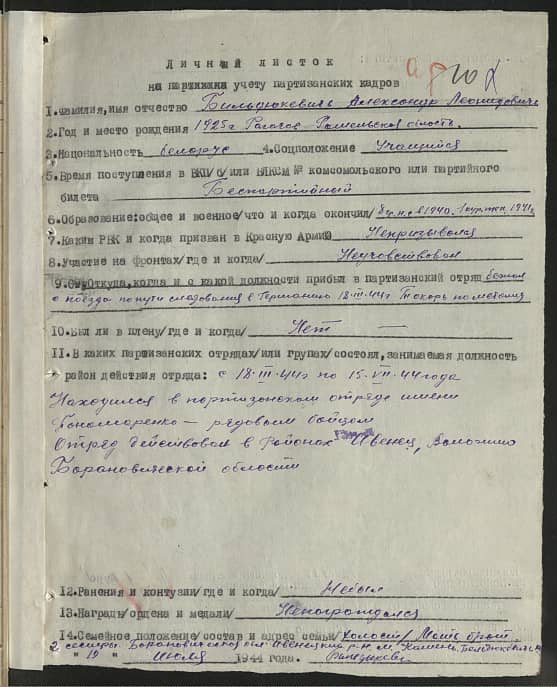 Личный листок
на партижния учету партизанских кадров
1. Фамилия, имя отчество Бильдюкевич Александр Леонидович
2. Год и место рождения 1925 г Рогачев область.
3. Национальность белорус 4. Соцположение Учащийся
5. Время поступления в ВКП/б/или ВЛКСМ № комсомольского или партийного
билета Беспартийный
6. Образование: общее и военное/что и когда окончил/ 1940. 1941г.
7. Каким РВК и когда призван в Красную Армию Непризывался
8. Участие на фронтах/где и когда/ Неучовствовал
9. Откуда, когда и с какой должности прибыл в партизанский отряд бежал
с поезда по пути следования в Германию 18-III-44г
10. Был ли в плену/где и когда/ Нет —
11. В каких партизанских отрядах/или групах/состоял, занимаемая должность
район действия отряда: с 18-III-44г по 15-VII-44 года
Находился в партизанском отряде имени
Пономаренко — рядовым бойцом
Отряд действовал в районах Ивенец, Воложино
Барановической области
12. Ранения и контузии/где и когда/ Небыл
13. Награды/ордена и медали/ Ненаграждался
14. Семейное положение/состав и адрес семьи/ холост/ Мать брат.
2 сестры. Барановическая обл Ивенецкий р-н м. Камень.
" 19 " Июля 1944 года.